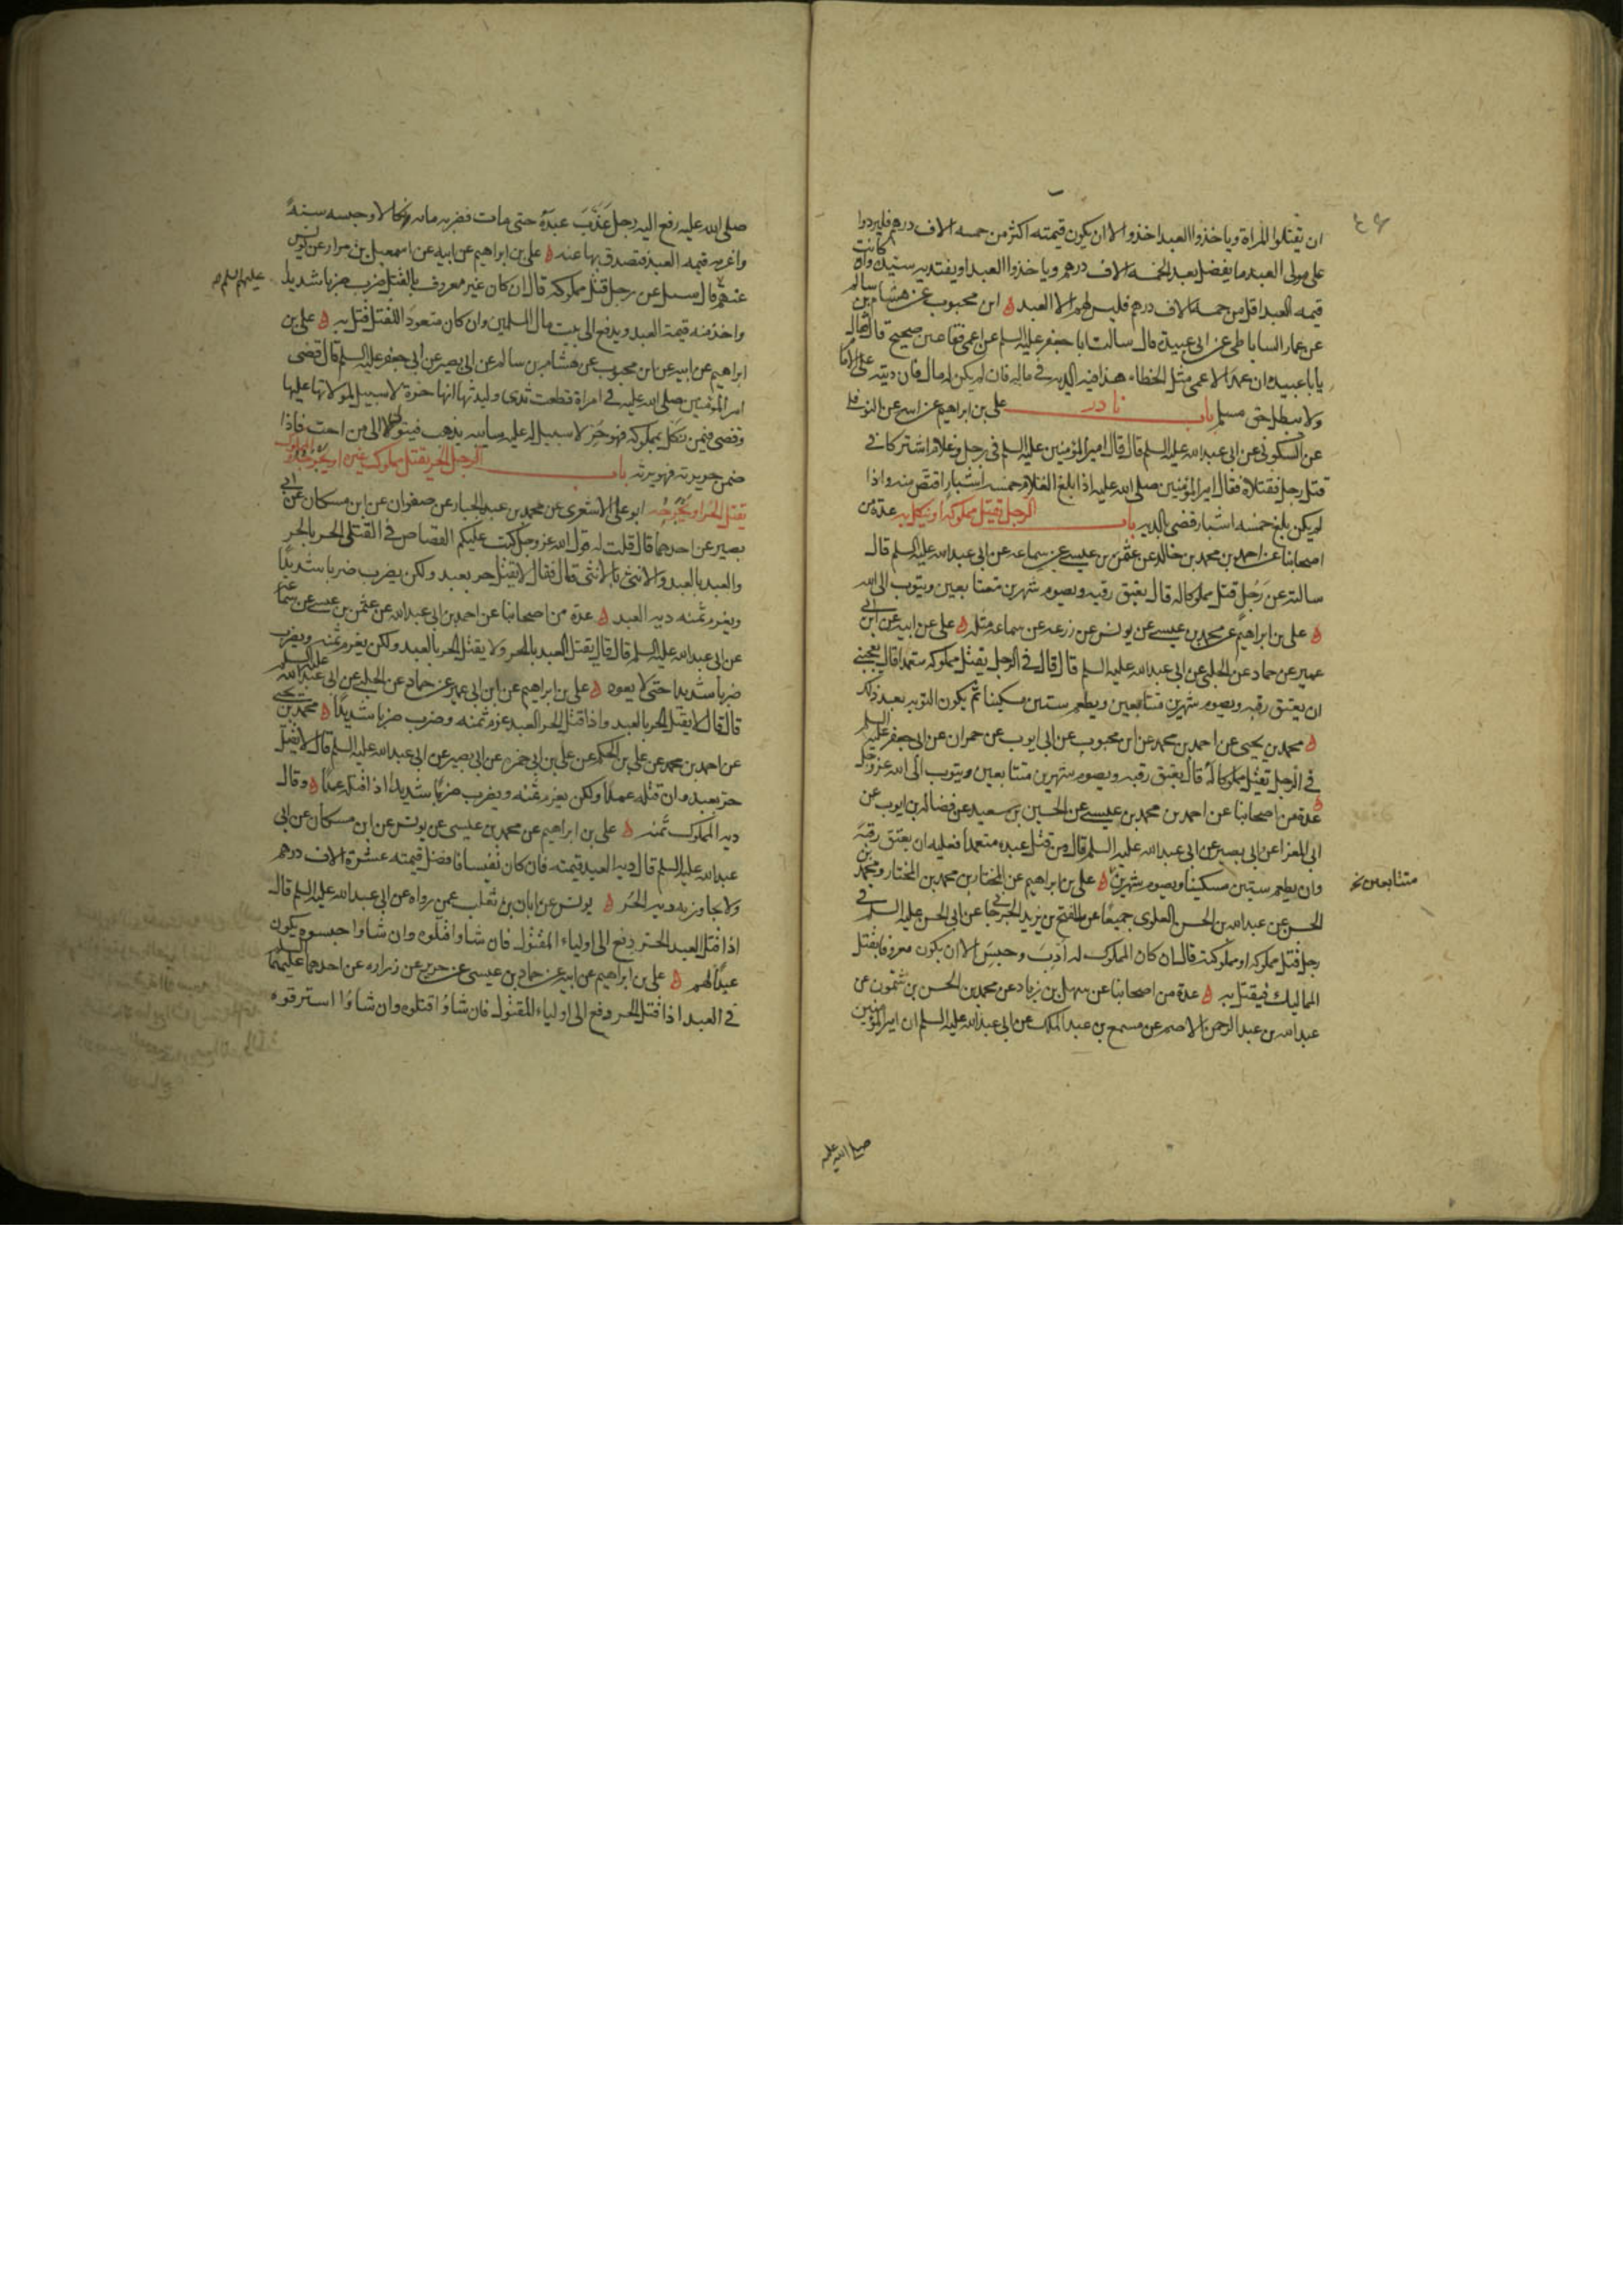 ان تقتلوا المراة وياخذوا العبد اخذوا الا ان يكون قيمته اكثر من خمسه الاف درهم فليردوا
على مولى العبد ما يفضل بعد الخمسه الاف درهم وياخذوا العبد او يفتديه سيده وان كانت
قيمه العبد اقل من خمسه الاف درهم فليس لهم الا العبد ه ابن محبوب عن هشام بن سالم
عن عمار الساباطى عن ابى عبيدة قال سالت ابا جعفر عليه السلم عن اعمى فقا عين صحيح قال فقال
يا با عبيدة ان عمد الاعمى مثل الخطاء هذا فيه الديه فى ماله فان لم يكن له مال فان ديته على الامام
ولا يبطل حق مسلم باب نادر على بن ابراهيم عن ابيه عن النوفلى
عن السكونى عن ابى عبد الله عليه السلم قال قال امير المؤمنين عليه السلم فى رجل وغلام اشتركا فى
قتل رجل فقتلاه فقال امير المؤمنين صلى الله عليه اذا بلغ الغلام خمسه اشبار اقتص منه واذا
لم يكن بلغ خمسه اشبار قضى بالديه باب الرجل يقتل مملوكه او ينكل به عدة من
اصحابنا عن احمد بن محمد بن خالد عن عثمن بن عيسى عن سماعه عن ابى عبد الله عليه السلم قال
سالته عن رجل قتل مملوكا له قال يعتق رقبه ويصوم شهرين متتابعين ويتوب الى الله
ه على بن ابراهيم عن محمد بن عيسى عن يونس عن زرعه عن سماعه مثله ه على عن ابيه عن ابن ابى
عمير عن حماد عن الحلبى عن ابى عبد الله عليه السلم قال قال فى الرجل يقتل مملوكه متعمدا قال يعجبنى
ان يعتق رقبه ويصوم شهرين متتابعين ويطعم ستين مسكينا ثم يكون التوبه بعد ذلك
ه محمد بن يحيى عن احمد بن محمد عن ابن محبوب عن ابى ايوب عن حمران عن ابى جعفر عليه السلم
فى الرجل يقتل مملوكا له قال يعتق رقبه ويصوم شهرين متتابعين ويتوب الى الله عز وجل
ه عدة من اصحابنا عن احمد بن محمد بن عيسى عن الحسين بن سعيد عن فضاله بن ايوب عن
ابى المغرا عن ابى بصير عن ابى عبد الله عليه السلم قال من قتل عبده متعمدا فعليه ان يعتق رقبة
وان يطعم ستين مسكينا ويصوم شهرين ه على بن ابراهيم عن المختار بن محمد بن المختار ومحمد بن
متتابعين نخ
الحسن عن عبد الله بن الحسن العلوى جميعا عن الفتح بن يزيد الجرجانى عن ابى الحسن عليه السلم فى
رجل قتل مملوكه او مملوكته قال ان كان المملوك له ادب وحبس الا ان يكون معروفا بقتل
المماليك فيقتل به ه عدة من اصحابنا عن سهل بن زياد عن محمد بن الحسن بن شمون عن
عبد الله بن عبد الرحمن الاصم عن مسمع بن عبد الملك عن ابى عبد الله عليه السلم ان امير المؤمنين
صلى الله عليه
صلى الله عليه رفع اليه رجل عذب عبده حتى مات فضربه مائه نكالا وحبسه سنة
واغرمه قيمه العبد فتصدق بها عنه ه على بن ابراهيم عن ابيه عن اسمعيل بن مرار عن يونس
عنهم قال سئل عن رجل قتل مملوكه قال ان كان غير معروف بالقتل ضرب ضربا شديدا
عليهم السلم
واخذ منه قيمة العبد ويدفع الى بيت مال المسلمين وان كان متعودا للقتل قتل به ه على بن
ابراهيم عن ابيه عن ابن محبوب عن هشام بن سالم عن ابى بصير عن ابى جعفر عليه السلم قال قضى
امير المؤمنين صلى الله عليه فى امراة قطعت ثدى وليدتها انها حرة لا سبيل لمولاتها عليها
وقضى فيمن نكل بمملوكه فهو حر لا سبيل له عليه سائبه يذهب فيتولى الى من احب فاذا
ضمن جريرته فهو يرثه باب الرجل الحر يقتل مملوك غيره او يجرحه او المملوك
يقتل الحر او يجرحه ابو على الاشعرى عن محمد بن عبد الجبار عن صفوان عن ابن مسكان عن ابى
بصير عن احدهما قال قلت له قول الله عز وجل كتب عليكم القصاص فى القتلى الحر بالحر
والعبد بالعبد والانثى بالانثى قال فقال لا يقتل حر بعبد ولكن يضرب ضربا شديدا
ويغرم ثمنه ديه العبد ه عدة من اصحابنا عن احمد بن ابى عبد الله عن عثمن بن عيسى عن سماعه
عن ابى عبد الله عليه السلم قال قال يقتل العبد بالحر ولا يقتل الحر بالعبد ولكن يغرم ثمنه ويضرب
ضربا شديدا حتى لا يعود ه على بن ابراهيم عن ابن ابى عمير عن حماد عن الحلبى عن ابى عبد الله عليه السلم
قال قال لا يقتل الحر بالعبد واذا قتل الحر العبد غرم ثمنه وضرب ضربا شديدا ه محمد بن يحيى
عن احمد بن محمد عن على بن الحكم عن على بن ابى حمزه عن ابى بصير عن ابى عبد الله عليه السلم قال لا يقتل
حر بعبد وان قتله عمدا ولكن يغرم ثمنه ويضرب ضربا شديدا اذا قتله عمدا ه وقال
ديه المملوك ثمنه ه على بن ابراهيم عن محمد بن عيسى عن يونس عن ابن مسكان عن ابى
عبد الله عليه السلم قال ديه العبد قيمته فان كان نفيسا فافضل قيمته عشرة الاف درهم
ولا يجاوز به ديه الحر ه يونس عن ابان بن تغلب عمن رواه عن ابى عبد الله عليه السلم قال
اذا قتل العبد الحر دفع الى اولياء المقتول فان شاوا قتلوه وان شاوا حبسوه يكون
عبدا لهم ه على بن ابراهيم عن ابيه عن حماد بن عيسى عن حريز عن زراره عن احدهما عليهما السلم
فى العبد اذا قتل الحر دفع الى اولياء المقتول فان شاؤا قتلوه وان شاؤا استرقوه